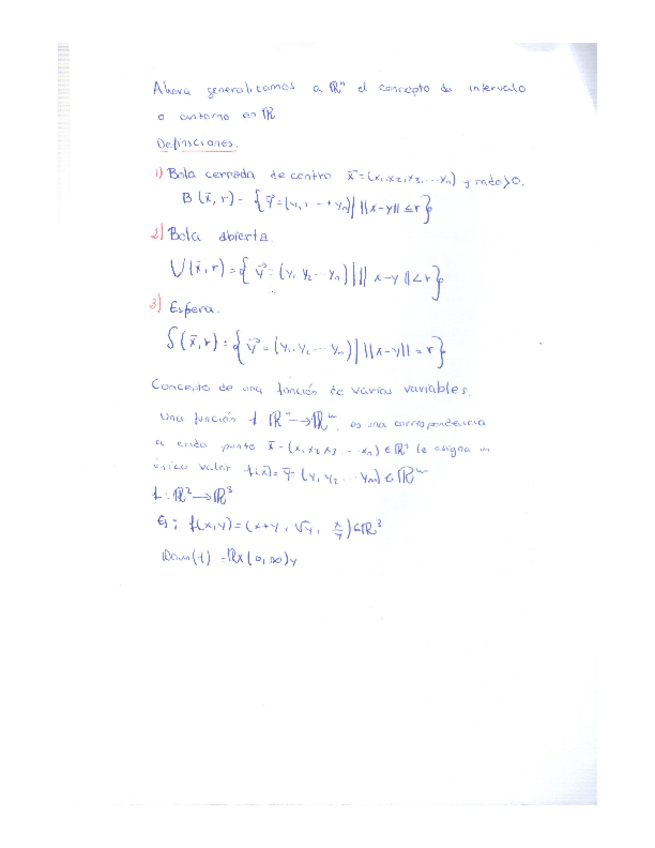 Ahora generalizamos a ℝⁿ el concepto de intervalo
o entorno en ℝ
Definiciones.
1) Bola cerrada de centro x̄=(x₁,x₂,x₃,...xₙ) y radio>0.
B(x̄,r)= {ȳ=(y₁, ... yₙ) | ||x-y|| ≤ r}
2) Bola abierta.
U(x̄,r)={ȳ=(y₁ y₂ ... yₙ) | || x-y || < r}
3) Esfera.
S(x̄,r)={ȳ=(y₁, y₂ ... yₙ) | ||x-y|| = r}
Concepto de una función de varias variables.
Una función f ℝⁿ→ℝᵐ, es una correspondencia
a cada punto x̄=(x₁ x₂ x₃ ... xₙ) ∈ ℝⁿ le asigna un
único valor f(x̄)= ȳ= (y₁ y₂ ... yₘ) ∈ ℝᵐ
f: ℝ²→ℝ³
Ej: f(x,y)=(x+y, √y, x/y)∈ℝ³
Dom(f) =ℝx(0,∞)y